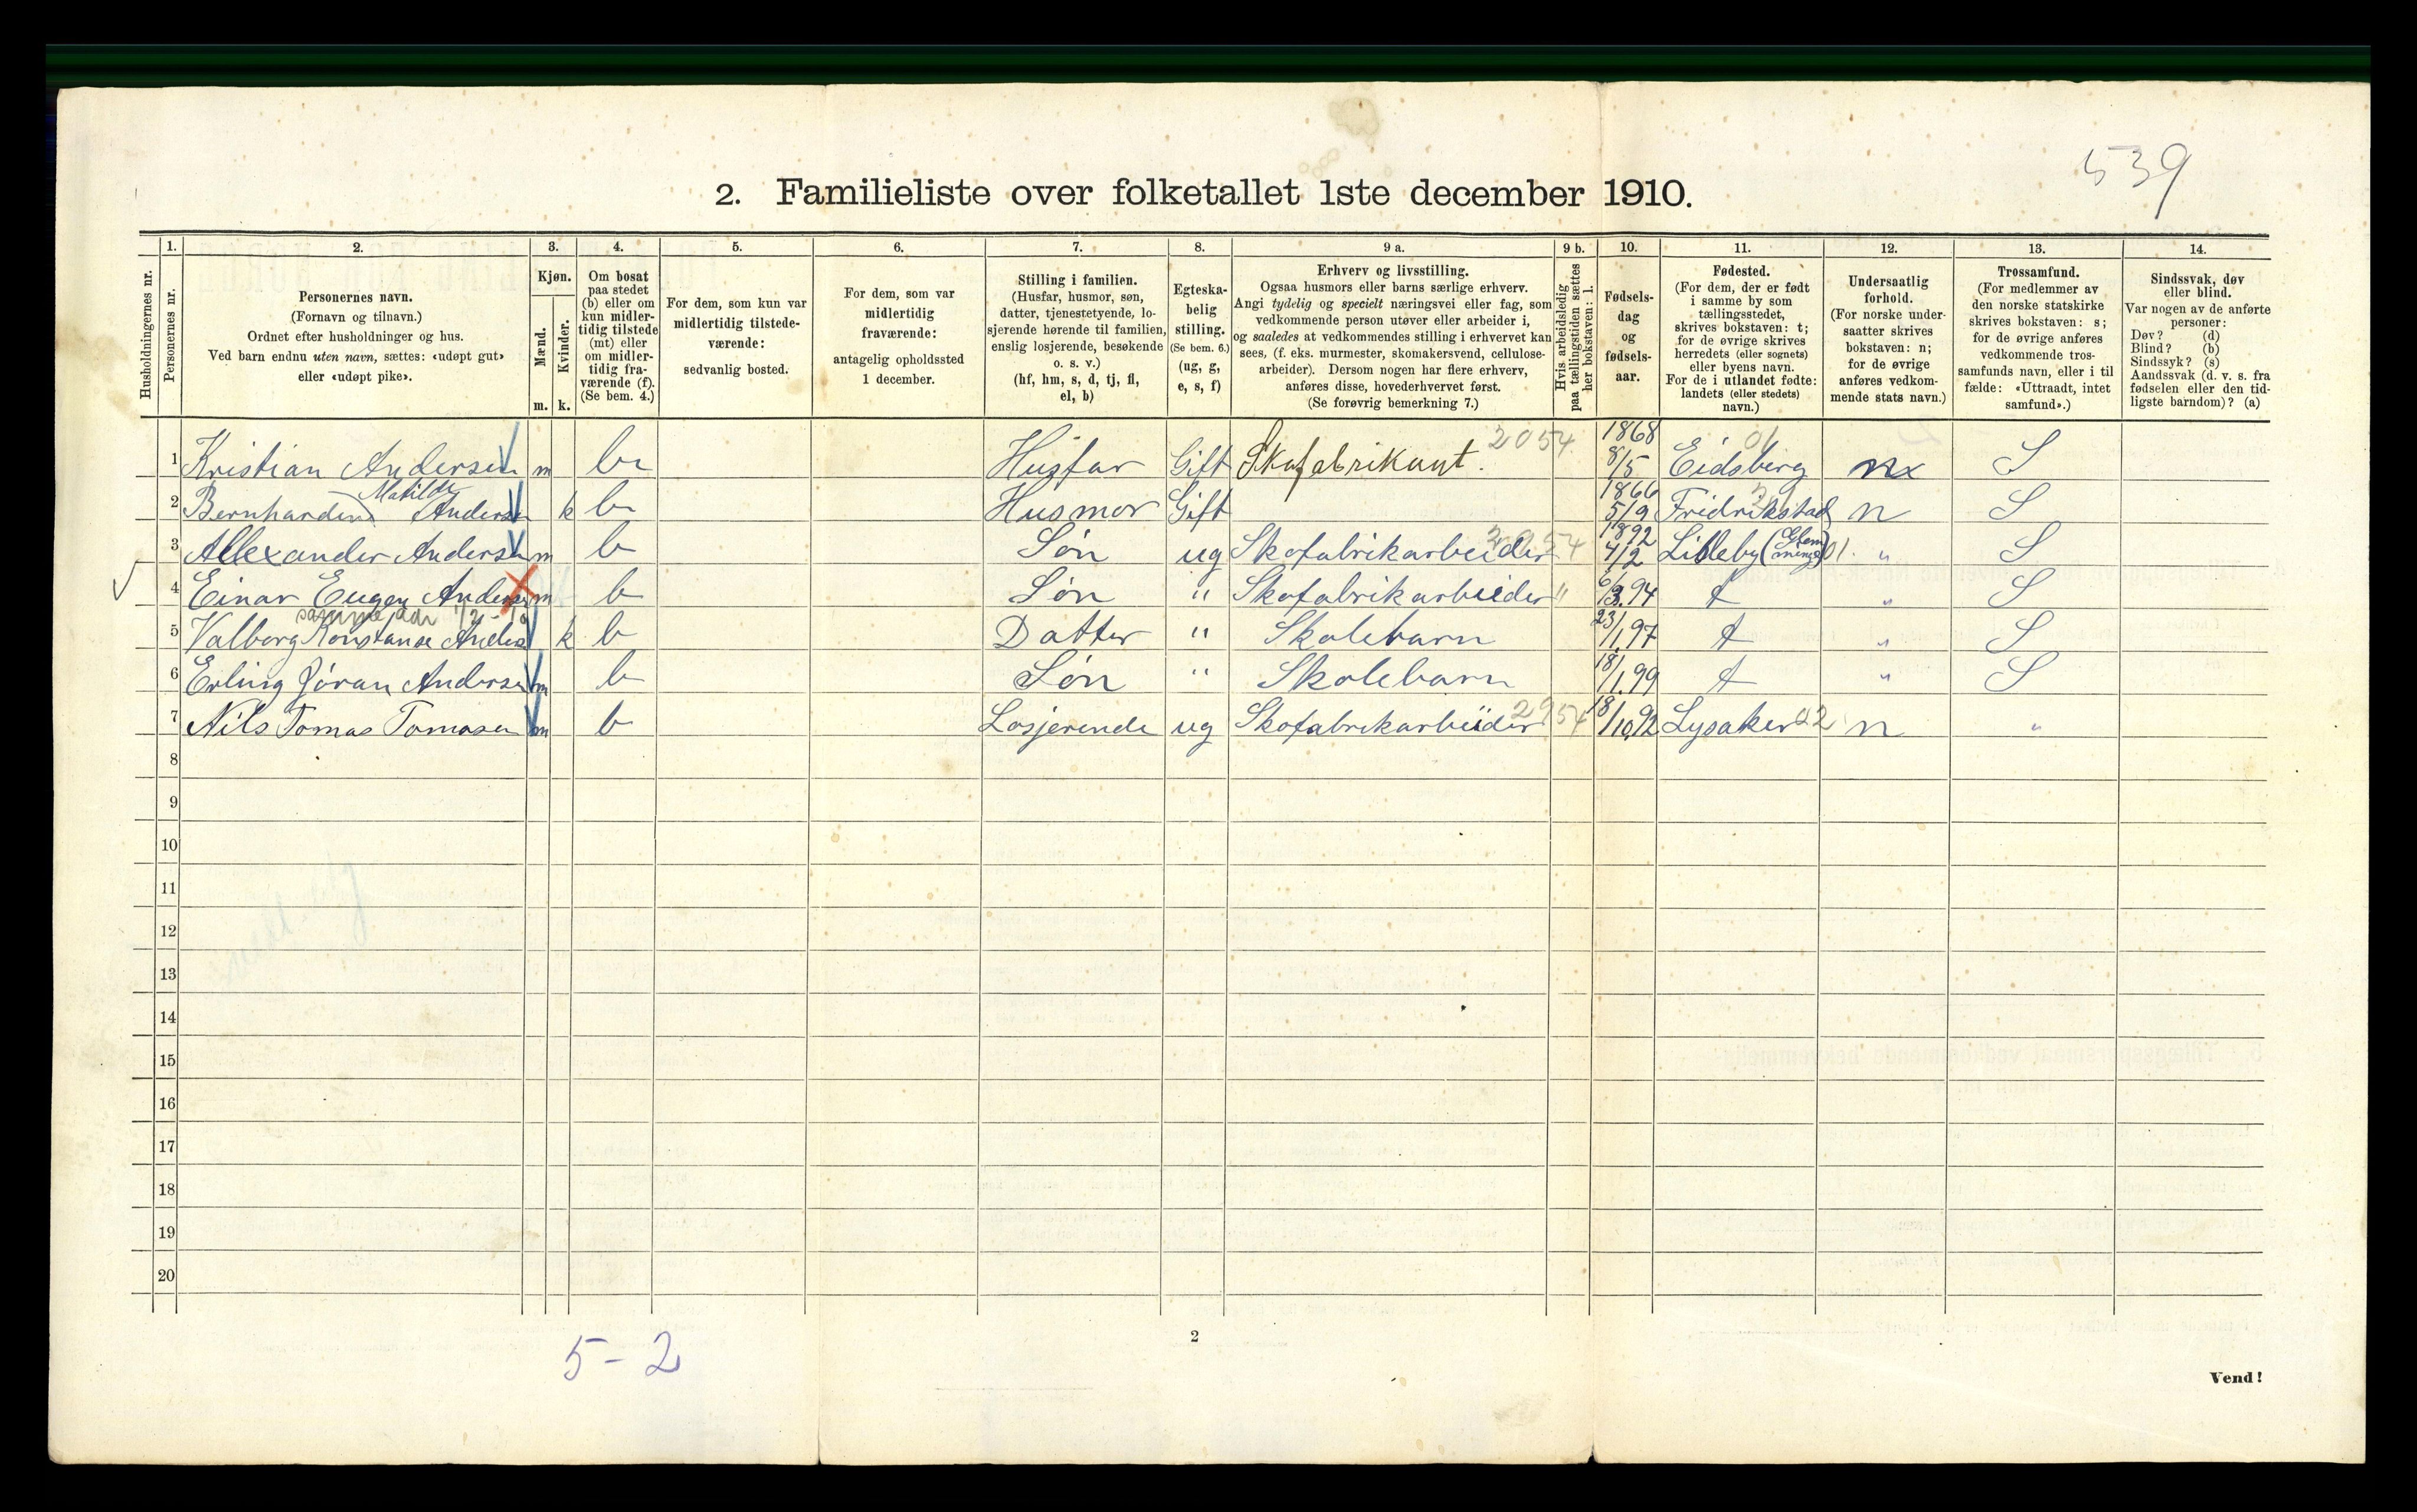 539
2. Familieliste over folketallet 1ste december 1910.
Husholdningernes nr.
1.
Personernes nr.
2.
Personernes navn.
(Fornavn og tilnavn.)
Ordnet efter husholdninger og hus.
Ved barn endnu uten navn, sættes: «udøpt gut»
eller «udøpt pike».
3.
Kjøn.
Mænd. Kvinder.
m. k.
4.
Om bosat
paa stedet
(b) eller om
kun midler-
tidig tilstede
(mt) eller
om midler-
tidig fra-
værende (f).
(Se bem. 4.)
5.
For dem, som kun var
midlertidig tilstede-
værende:
sedvanlig bosted.
6.
For dem, som var
midlertidig
fraværende:
antagelig opholdssted
1 december.
7.
Stilling i familien.
(Husfar, husmor, søn,
datter, tjenestetyende, lo-
sjerende hørende til familien,
enslig losjerende, besøkende
o. s. v.)
(hf, hm, s, d, tj, fl,
el, b)
8.
Egteska-
belig
stilling.
(Se bem. 6.)
(ug, g,
e, s, f)
9 a.
Erhverv og livsstilling.
Ogsaa husmors eller barns særlige erhverv.
Angi tydelig og specielt næringsvei eller fag, som
vedkommende person utøver eller arbeider i,
og saaledes at vedkommendes stilling i erhvervet kan
sees, (f. eks. murmester, skomakersvend, cellulose-
arbeider). Dersom nogen har flere erhverv,
anføres disse, hovederhvervet først.
(Se forøvrig bemerkning 7.)
9 b.
Hvis arbeidsledig
paa tællingstiden sættes
her bokstaven: l.
10.
Fødsels-
dag
og
fødsels-
aar.
11.
Fødested.
(For dem, der er født
i samme by som
tællingsstedet,
skrives bokstaven: t;
for de øvrige skrives
herredets (eller sognets)
eller byens navn.
For de i utlandet fødte:
landets (eller stedets)
navn.)
12.
Undersaatlig
forhold.
(For norske under-
saatter skrives
bokstaven: n;
for de øvrige
anføres vedkom-
mende stats navn.)
13.
Trossamfund.
(For medlemmer av
den norske statskirke
skrives bokstaven: s;
for de øvrige anføres
vedkommende tros-
samfunds navn, eller i til
fælde: «Uttraadt, intet
samfund».)
14.
Sindssvak, døv
eller blind.
Var nogen av de anførte
personer:
Døv? (d)
Blind? (b)
Sindssyk? (s)
Aandssvak (d. v. s. fra
fødselen eller den tid-
ligste barndom)? (a)
1 Kristian Andersen m b Husfar Gift Skofabrikant. 2054 1868 8/5 Eidsberg 01 n x S
2 Bernhardine Matilde Andersen k b Husmor Gift 1866 5/9 Fridrikstad n S
3 Allexander Andersen m b Søn ug Skofabrikarbeider 2954 1892 4/2 Lilleby (Glemminge) 01. " S
4 Einar Eugen Andersen m b Søn " Skofabrikarbeider " 6/3.94 t " S
5 Valborg Konstanse Anders k b Datter " Skolebarn 23/1.97 t " S
6 Erling Jøran Andersen m b Søn " Skolebarn 18/1.99 t " S
7 Nils Tomas Tomasen m b Losjerende ug Skofabrikarbeider 2954 18/10.92 Lysaker 02 n "
8
9
10
11
12
13
14
15
16
17
18
19
20
5-2
2
Vend!